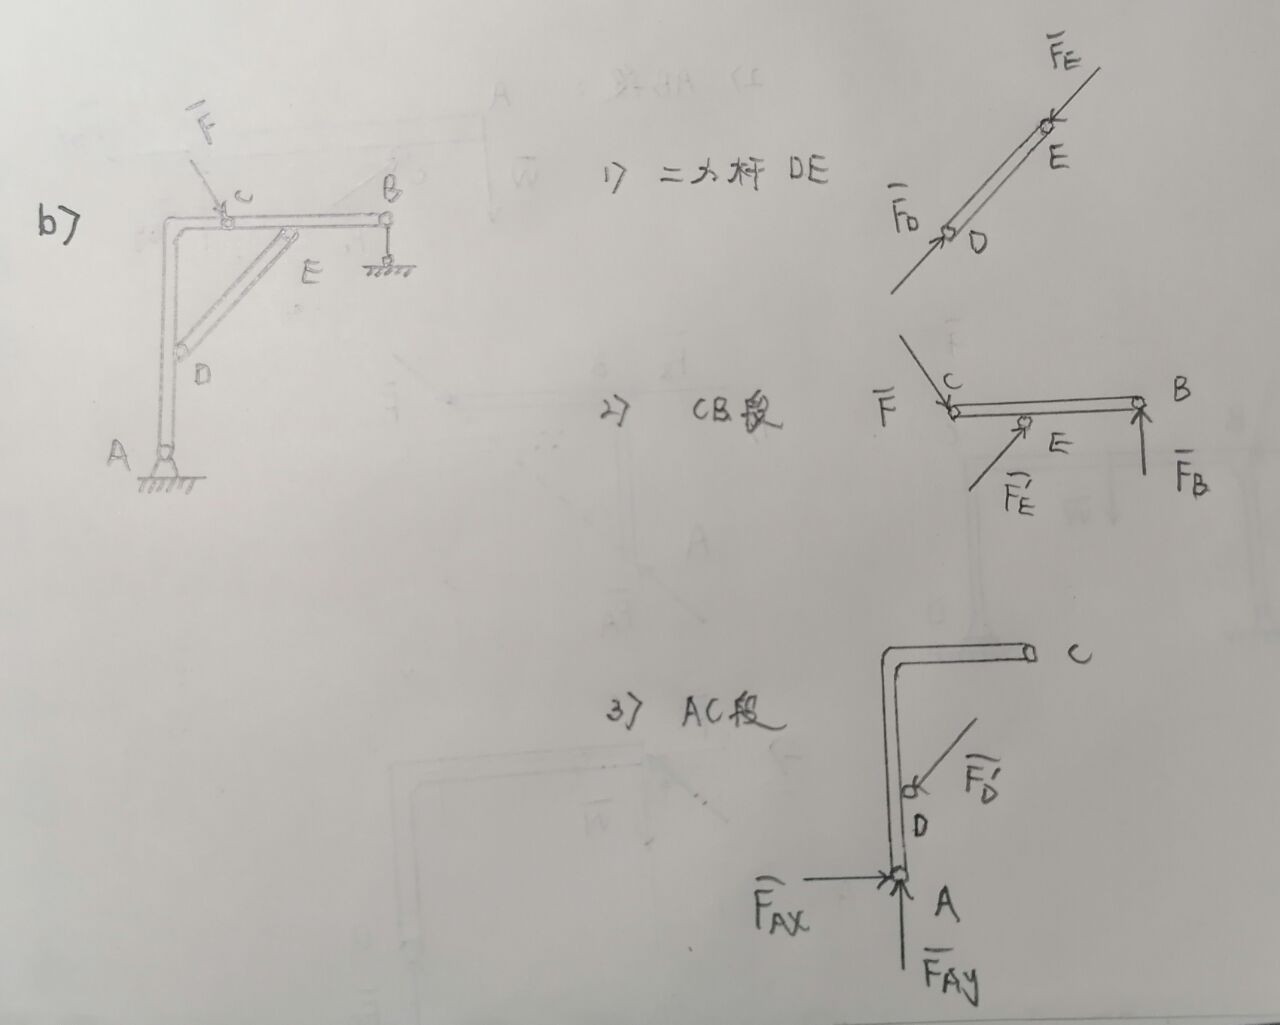 b)
F̄
C
B
E
D
A
1) 二力杆 DE
F̄E
E
F̄D
D
2) CB段
F̄
C
B
E
F̄'E
F̄B
3) AC段
C
F̄'D
D
F̄AX
A
F̄Ay